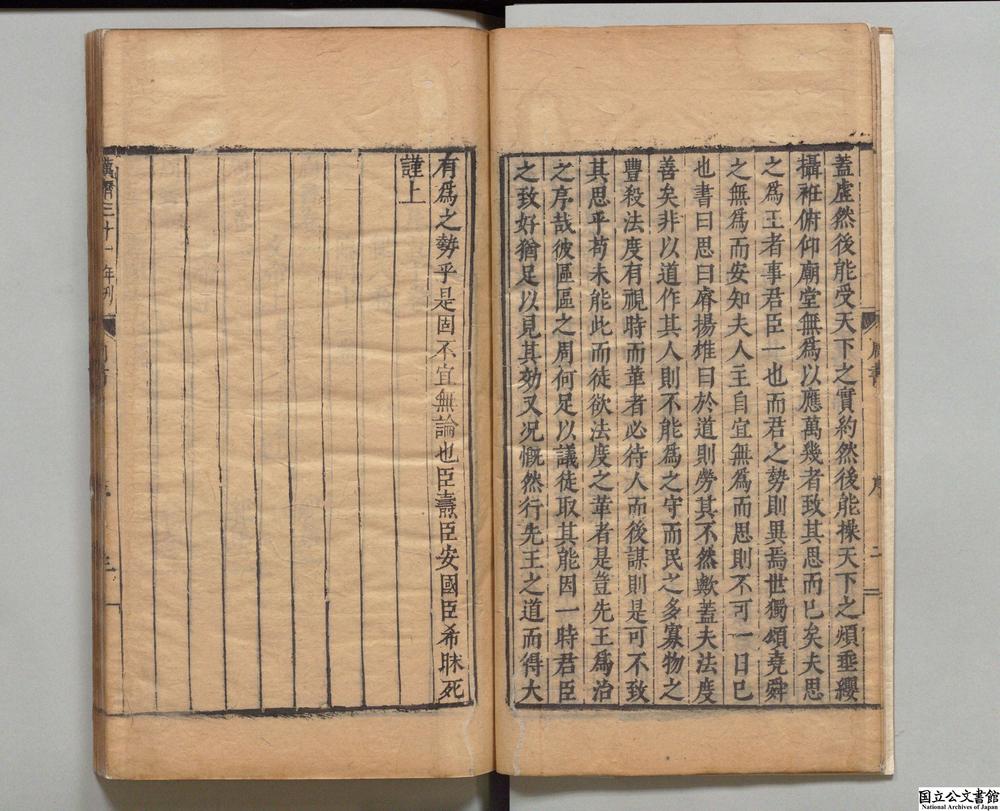 周書
序
二
蓋虛然後能受天下之實約然後能操天下之煩垂纓
攝袵俯仰廟堂無爲以應萬幾者致其思而已矣夫思
之爲王者事君臣一也而君之勢則異焉世獨頌堯舜
之無爲而安知夫人主自宜無爲而思則不可一日已
也書曰思曰睿揚雄曰於道則勞其不然歟蓋夫法度
善矣非以道作其人則不能爲之守而民之多寡物之
豐殺法度有視時而革者必待人而後謀則是可不致
其思乎苟未能此而徒欲法度之革者是豈先王爲治
之序哉彼區區之周何足以議徒取其能因一時君臣
之致好猶足以見其効又况慨然行先王之道而得大
有爲之勢乎是固不宜無論也臣燾臣安國臣希昧死
謹上
年刋
三
国立公文書館
National Archives of Japan